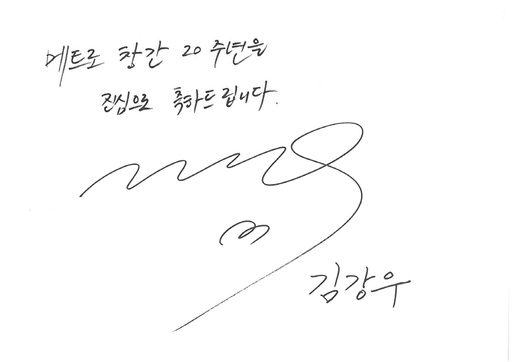 메트로 창간 20주년을
진심으로 축하드립니다.
김강우